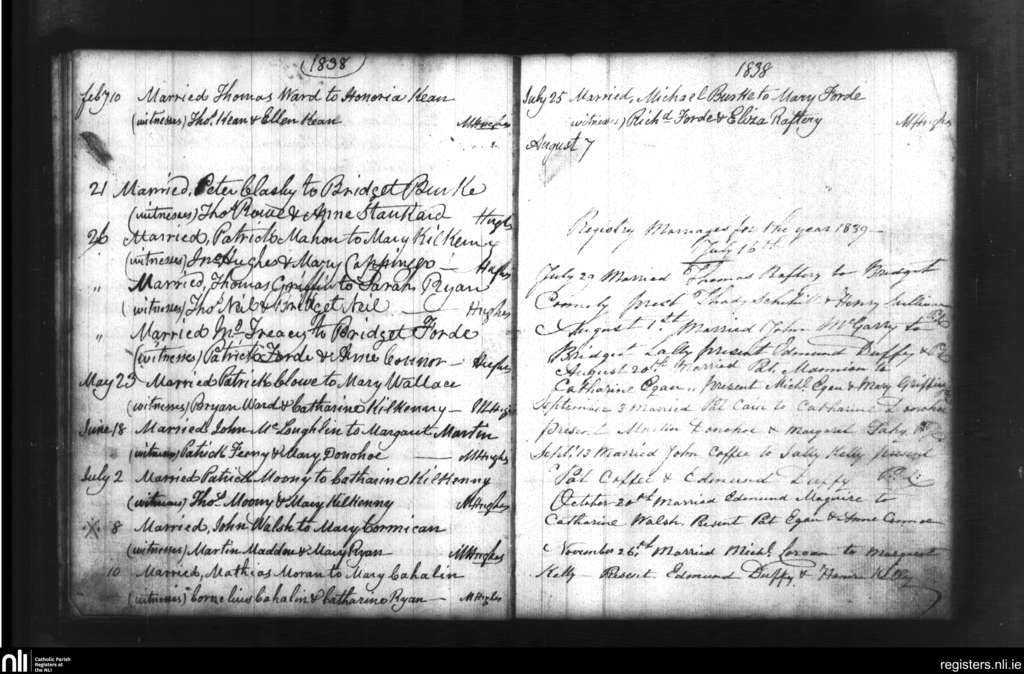 1838
feby 10 Married Thomas Ward to Honoria Kean
(witnesses) Thos. Kean & Ellen Kean MHughes
21 Married, Peter Clasby to Bridget Burke
(witnesses) Thos Rowe & Anne Stankard Hughs
26 Married, Patrick Mahon to Mary Kilkenny
(witnesses) Jno Hughes & Mary Hughes
" Married, Thomas Griffin to Sarah Ryan
(witness) Thos Neil & Bridget Neil — Hughes
" Married Jno Treacy to Bridget Forde
(witness) Patrick Forde & Anne Connor — Hughs
May 23 Married Patrick Clowe to Mary Wallace
(witnesses) Bryan Ward & Catharine Kilkenny — MHughs
June 18 Married John McLoughlin to Margaret Martin
(witness) Patrick Feeny & Mary Donohoe — MHughs
July 2 Married Patrick Moony to Catharine Kilkenny
(witnesses) Thos. Moony & Mary Kilkenny MHughes
8 Married, John Walsh to Mary Cormican
(witness) Martin Madden & Mary Ryan MHughes
10 Married, Mathias Moran to Mary Cahalin
(witnesses) Cornelius Cahalin & Catharine Ryan — MHughs
1838
July 25 Married, Michael Burke to Mary Forde
witness) Richd Forde & Eliza Raftery MHughs
August 7
Registry Marriages for the year 1839—
July 16th
July 29 Married Thomas Raftery to Bridget
Connely Prest Thady & Henry
August 1st. Married John McGarry to
Bridget Lally present Edmund Duffy &
August 20th Married Pat Mannion to
Catharine Egan, Present Michl Egan & Mary Griffin
September 3 Married Pat Cain to Catharine Donohoe
present Martin Donohoe & Margaret
Sept. 13 Married John Coffee to Sally Kelly present
Pat Coffee & Edmund Duffy
October 20th Married Edmund Maguire to
Catharine Walsh. Present Pat Egan & Anne Connor
November 26th Married Michl. to Margaret
Kelly — Present Edmund Duffy, & Honor Kelly
nli
Catholic Parish
Registers at
the NLI
registers.nli.ie